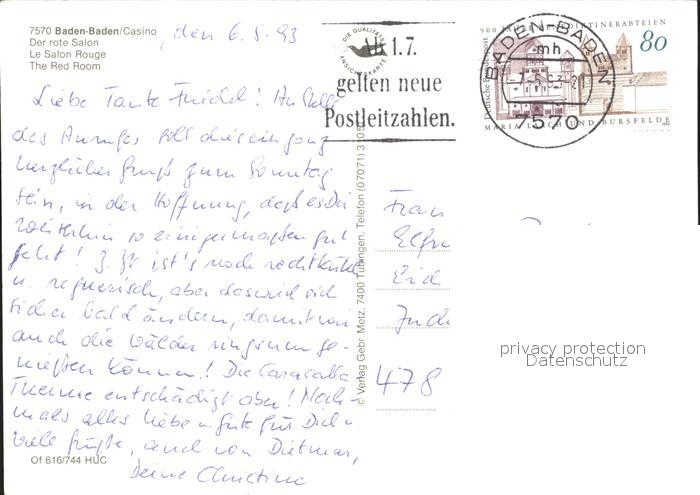 7570 Baden-Baden/Casino
Der rote Salon
Le Salon Rouge
The Red Room
, den 6.5.93
DIE QUALITÄTS
ANSICHTSKARTE
Ab 1.7.
gelten neue
Postleitzahlen.
BADEN-BADEN
mh
7570
900 JAHRE BENEDIKTINERABTEIEN
80
Deutsche Bundespost
MARIA LAACH UND BURSFELDE
Liebe Tante Friedel! Anstelle
des Anrufes soll dies ein ganz
herzlicher Gruß zum Sonntag
sein, in der Hoffnung, daß es Dir
weiterhin so einigermaßen gut
geht! Z. Zt ist's noch recht kühl
u. regnerisch, aber das wird sich
sicher bald ändern, damit wir
auch die Wälder ringsum ge-
nießen können! Die Caracalla
Therme entschädigt aber! Noch-
mals alles Liebe u. Gute für Dich u.
viele Grüße, auch von Dietmar,
Deine Christina
Of 616/744 HUC
© Verlag Gebr. Metz, 7400 Tübingen, Telefon (07071) 3105
Frau
478
privacy protection
Datenschutz